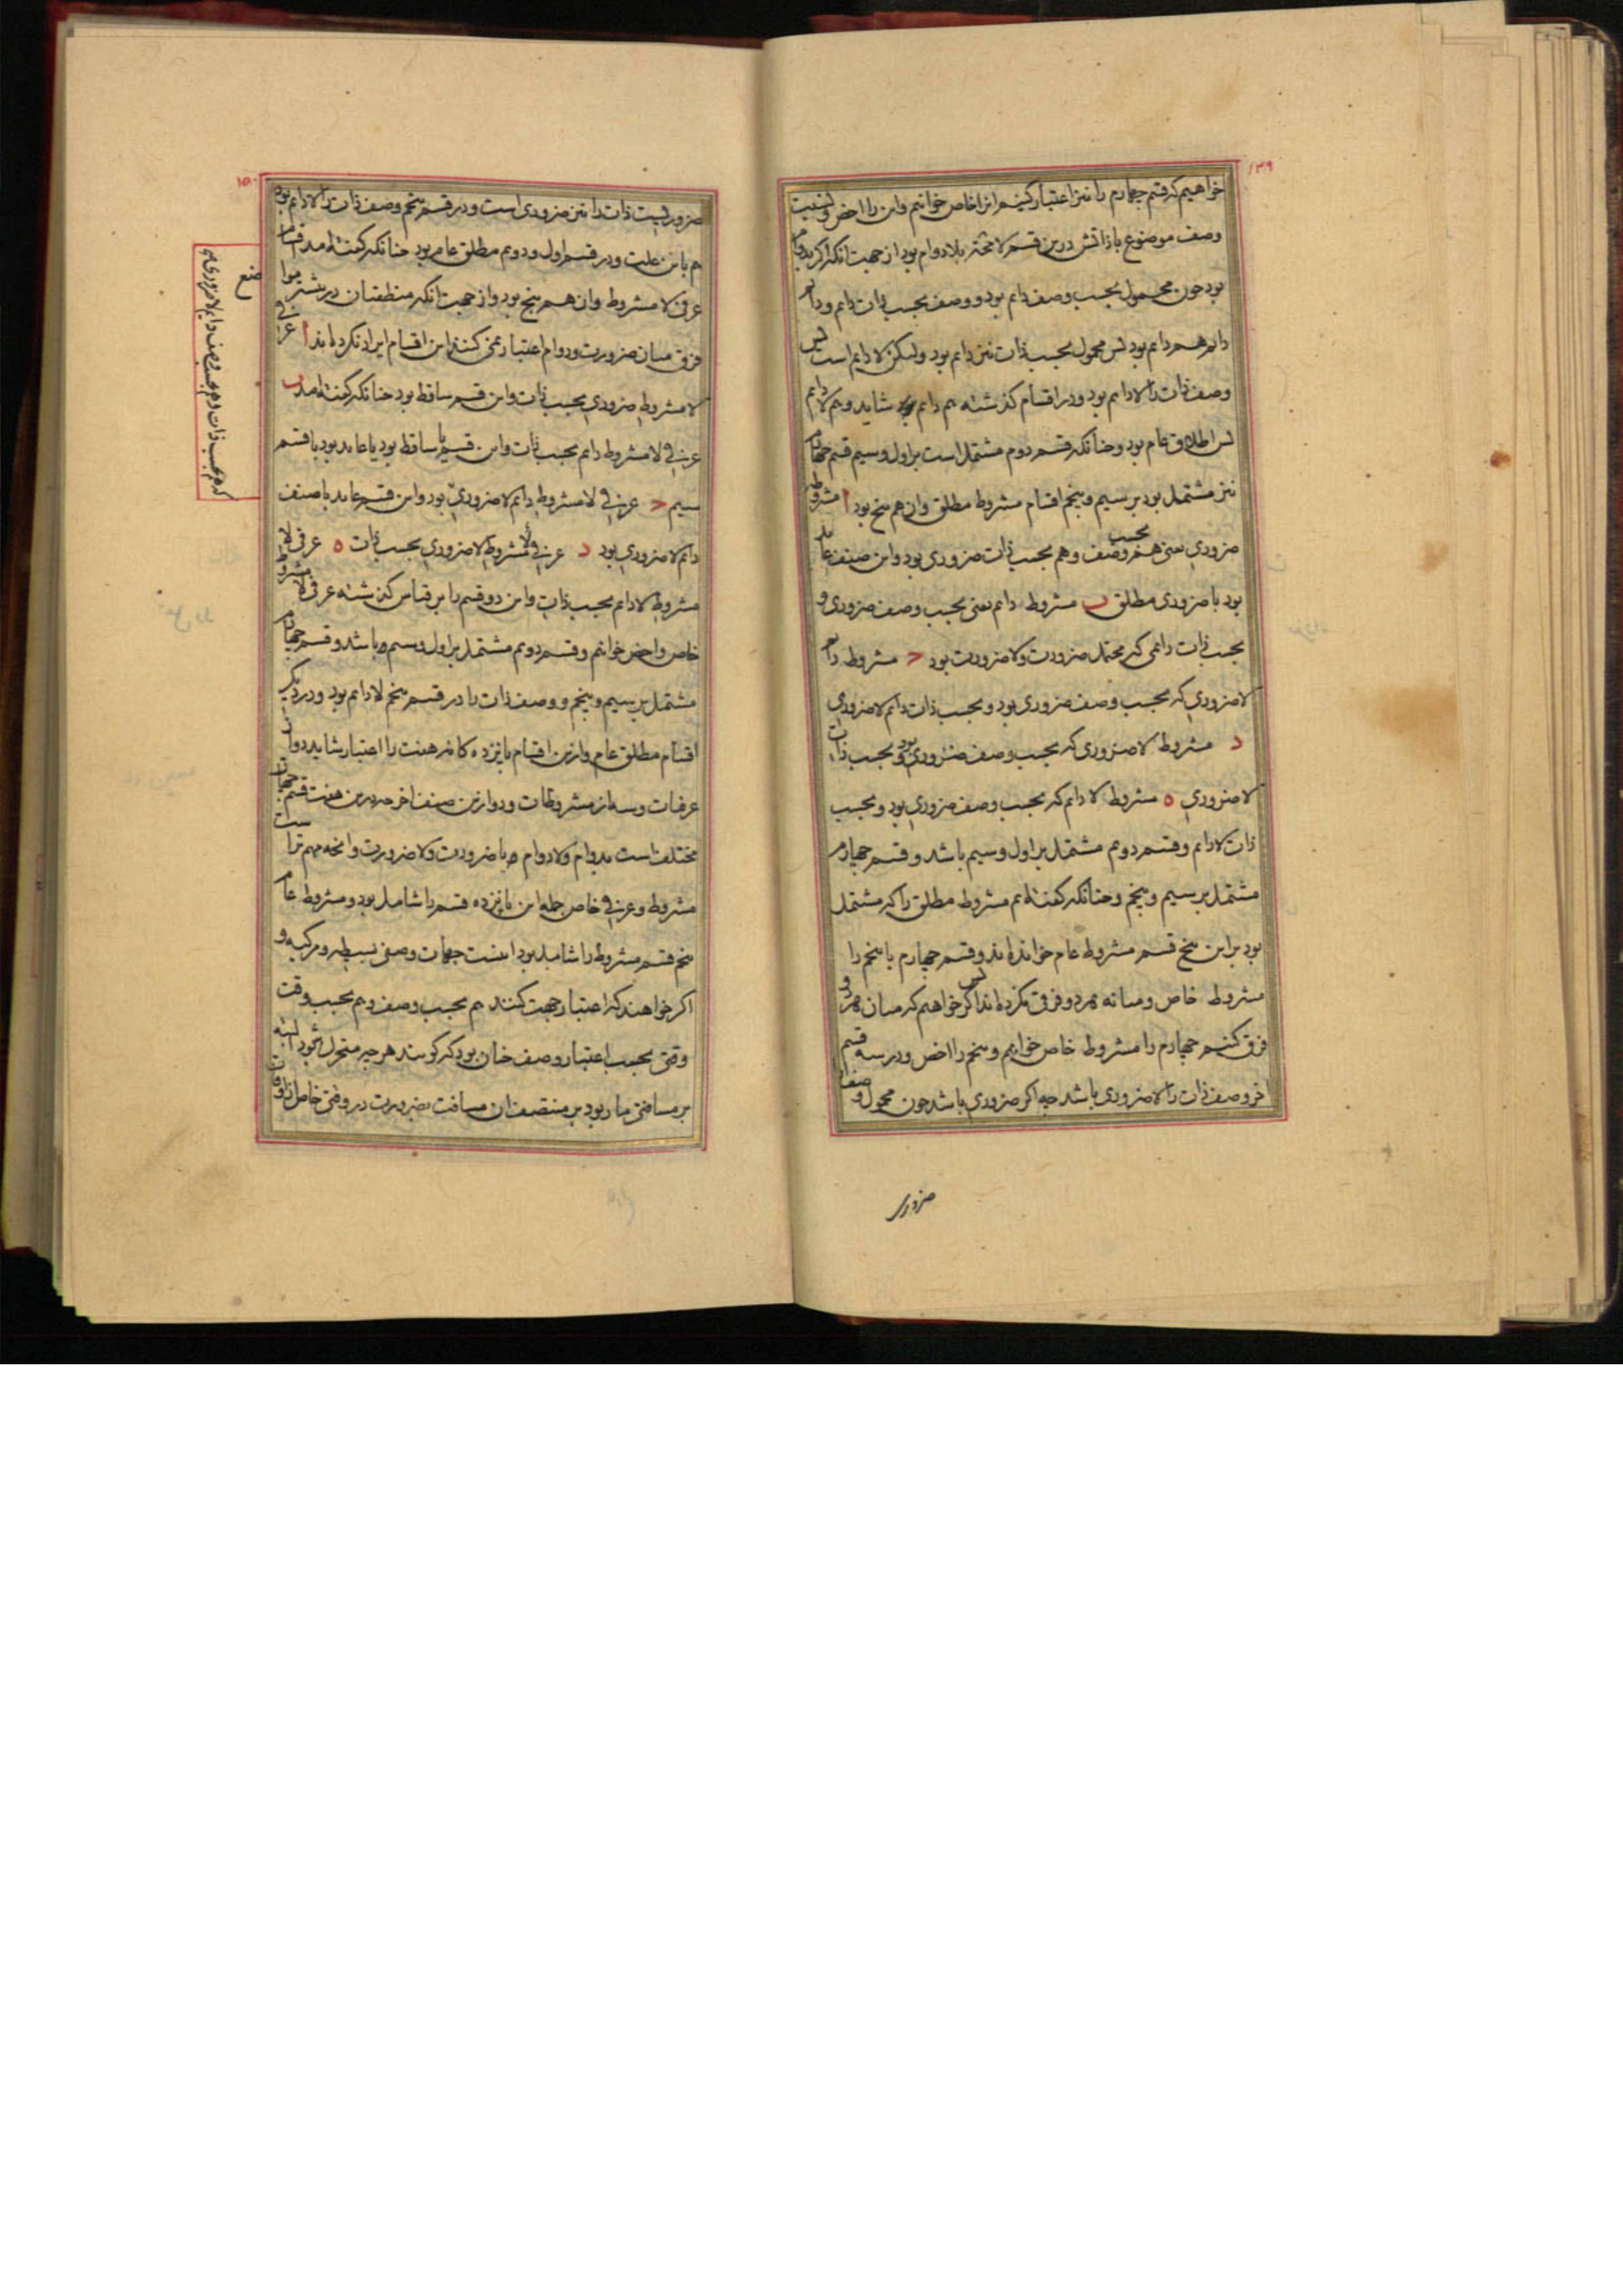 ۱۴۹
خواهیم که قسم چهارم را نیز اعتبار کنیم انرا خاص خوانیم وان را اخص و نسبت
وصف موضوع با ذاتش درین قسم لا محاله بلا دوام بود از جهت انکه اکر بدوام
بود چون محمول بحسب وصف دایم بود و وصف بحسب ذات دایم و دایم
دایم هم دایم بود پس محمول بحسب ذات نیز دایم بود ولیکن لا دایم است پس
وصف ذات را لا دایم بود و در اقسام کذشته هم دایم شاید و هم لا دایم
پس اطلاق عام بود و چنانکه قسم دوم مشتمل است بر اول و سیم قسم چهارم
نیز مشتمل بود بر سیم و پنجم اقسام مشروط مطلق وان هم پنج بود ا مشروط
ضروری یعنی هم بحسب وصف و هم بحسب ذات ضروری بود واین صنف عاید
بود با ضروری مطلق ب مشروط دایم یعنی بحسب وصف ضروری و
بحسب ذات دایمی که محتمل ضرورت ولا ضرورت بود ج مشروط دایم
لا ضروری که بحسب وصف ضروری بود و بحسب ذات دایم لا ضروری
د مشروط لا ضروری که بحسب وصف ضروری بود و بحسب ذات
لا ضروری ه مشروط لا دایم که بحسب وصف ضروری بود و بحسب
ذات لا دایم و قسم دوم مشتمل بر اول و سیم باشد و قسم چهارم
مشتمل بر سیم و پنجم و چنانکه کفته‌ایم مشروط مطلق را که مشتمل
بود بر این پنج قسم مشروط عام خوانده‌اند و قسم چهارم یا پنجم را
مشروط خاص و میانه هر دو فرق نکرده‌اند پس اکر خواهیم که میان هر دو
فرق کنیم چهارم را مشروط خاص خوانیم و پنجم را اخص و در سه قسم
اخر وصف ذات را لا ضروری باشد چه اکر ضروری باشد چون محمول وصف را
ضروری
۱۵۰
ضروریست ذات را نیز ضروری است و در قسم پنجم وصف ذات را لا دایم بود
هم باین علت و در قسم اول و دوم مطلق عام بود چنانکه کفته امد اقسام
عرفی لا مشروط وان هم پنج بود و از جهت انکه منطقیان در بیشتر مواضع
فرق میان ضرورت و دوام اعتبار نمی کنند این اقسام ایراد نکرده‌اند ا عرفی
لا مشروط ضروری بحسب ذات واین قسم ساقط بود چنانکه کفته امد ب
عرفی لا مشروط دایم بحسب ذات واین قسم یا ساقط بود یا عاید بود با قسم
سیم ج عرفی لا مشروط دایم لا ضروری بود واین قسم عاید با صنف
دایم لا ضروری بود د عرفی ولا مشروط لا ضروری بحسب ذات ه عرفی لا
مشروط لا دایم بحسب ذات واین دو قسم را بر قیاس کذشته عرفی لا مشروط
خاص واخص خوانیم و قسم دوم مشتمل بر اول و سیم باشد و قسم چهارم
مشتمل بر سیم و پنجم و وصف ذات را در قسم پنجم لا دایم بود و در دیکر
اقسام مطلق عام وازین اقسام پانزده کانه هفت را اعتبار شاید دو از
عرفیات و سه از مشروطات و دو ازین صنف اخر چه درین هفت قسم جهات
مختلف است بدوام ولا دوام و با ضرورت ولا ضرورت وانچه مهم تر است
مشروط و عرفی خاص جمله این پانزده قسم را شامل بود و مشروط عام
پنج قسم مشروط را شامل بود اینست جهات وصفی بسیطه و مرکبه و
اکر خواهند که اعتبار جهت کنند هم بحسب وصف و هم بحسب وقت
وقتی بحسب اعتبار وصف چنان بود که کویند هر چیز متحرک شود البته
بر مسافتی مار بود بر منتصف ان مسافت بضرورت در وقتی خاص از اوقات